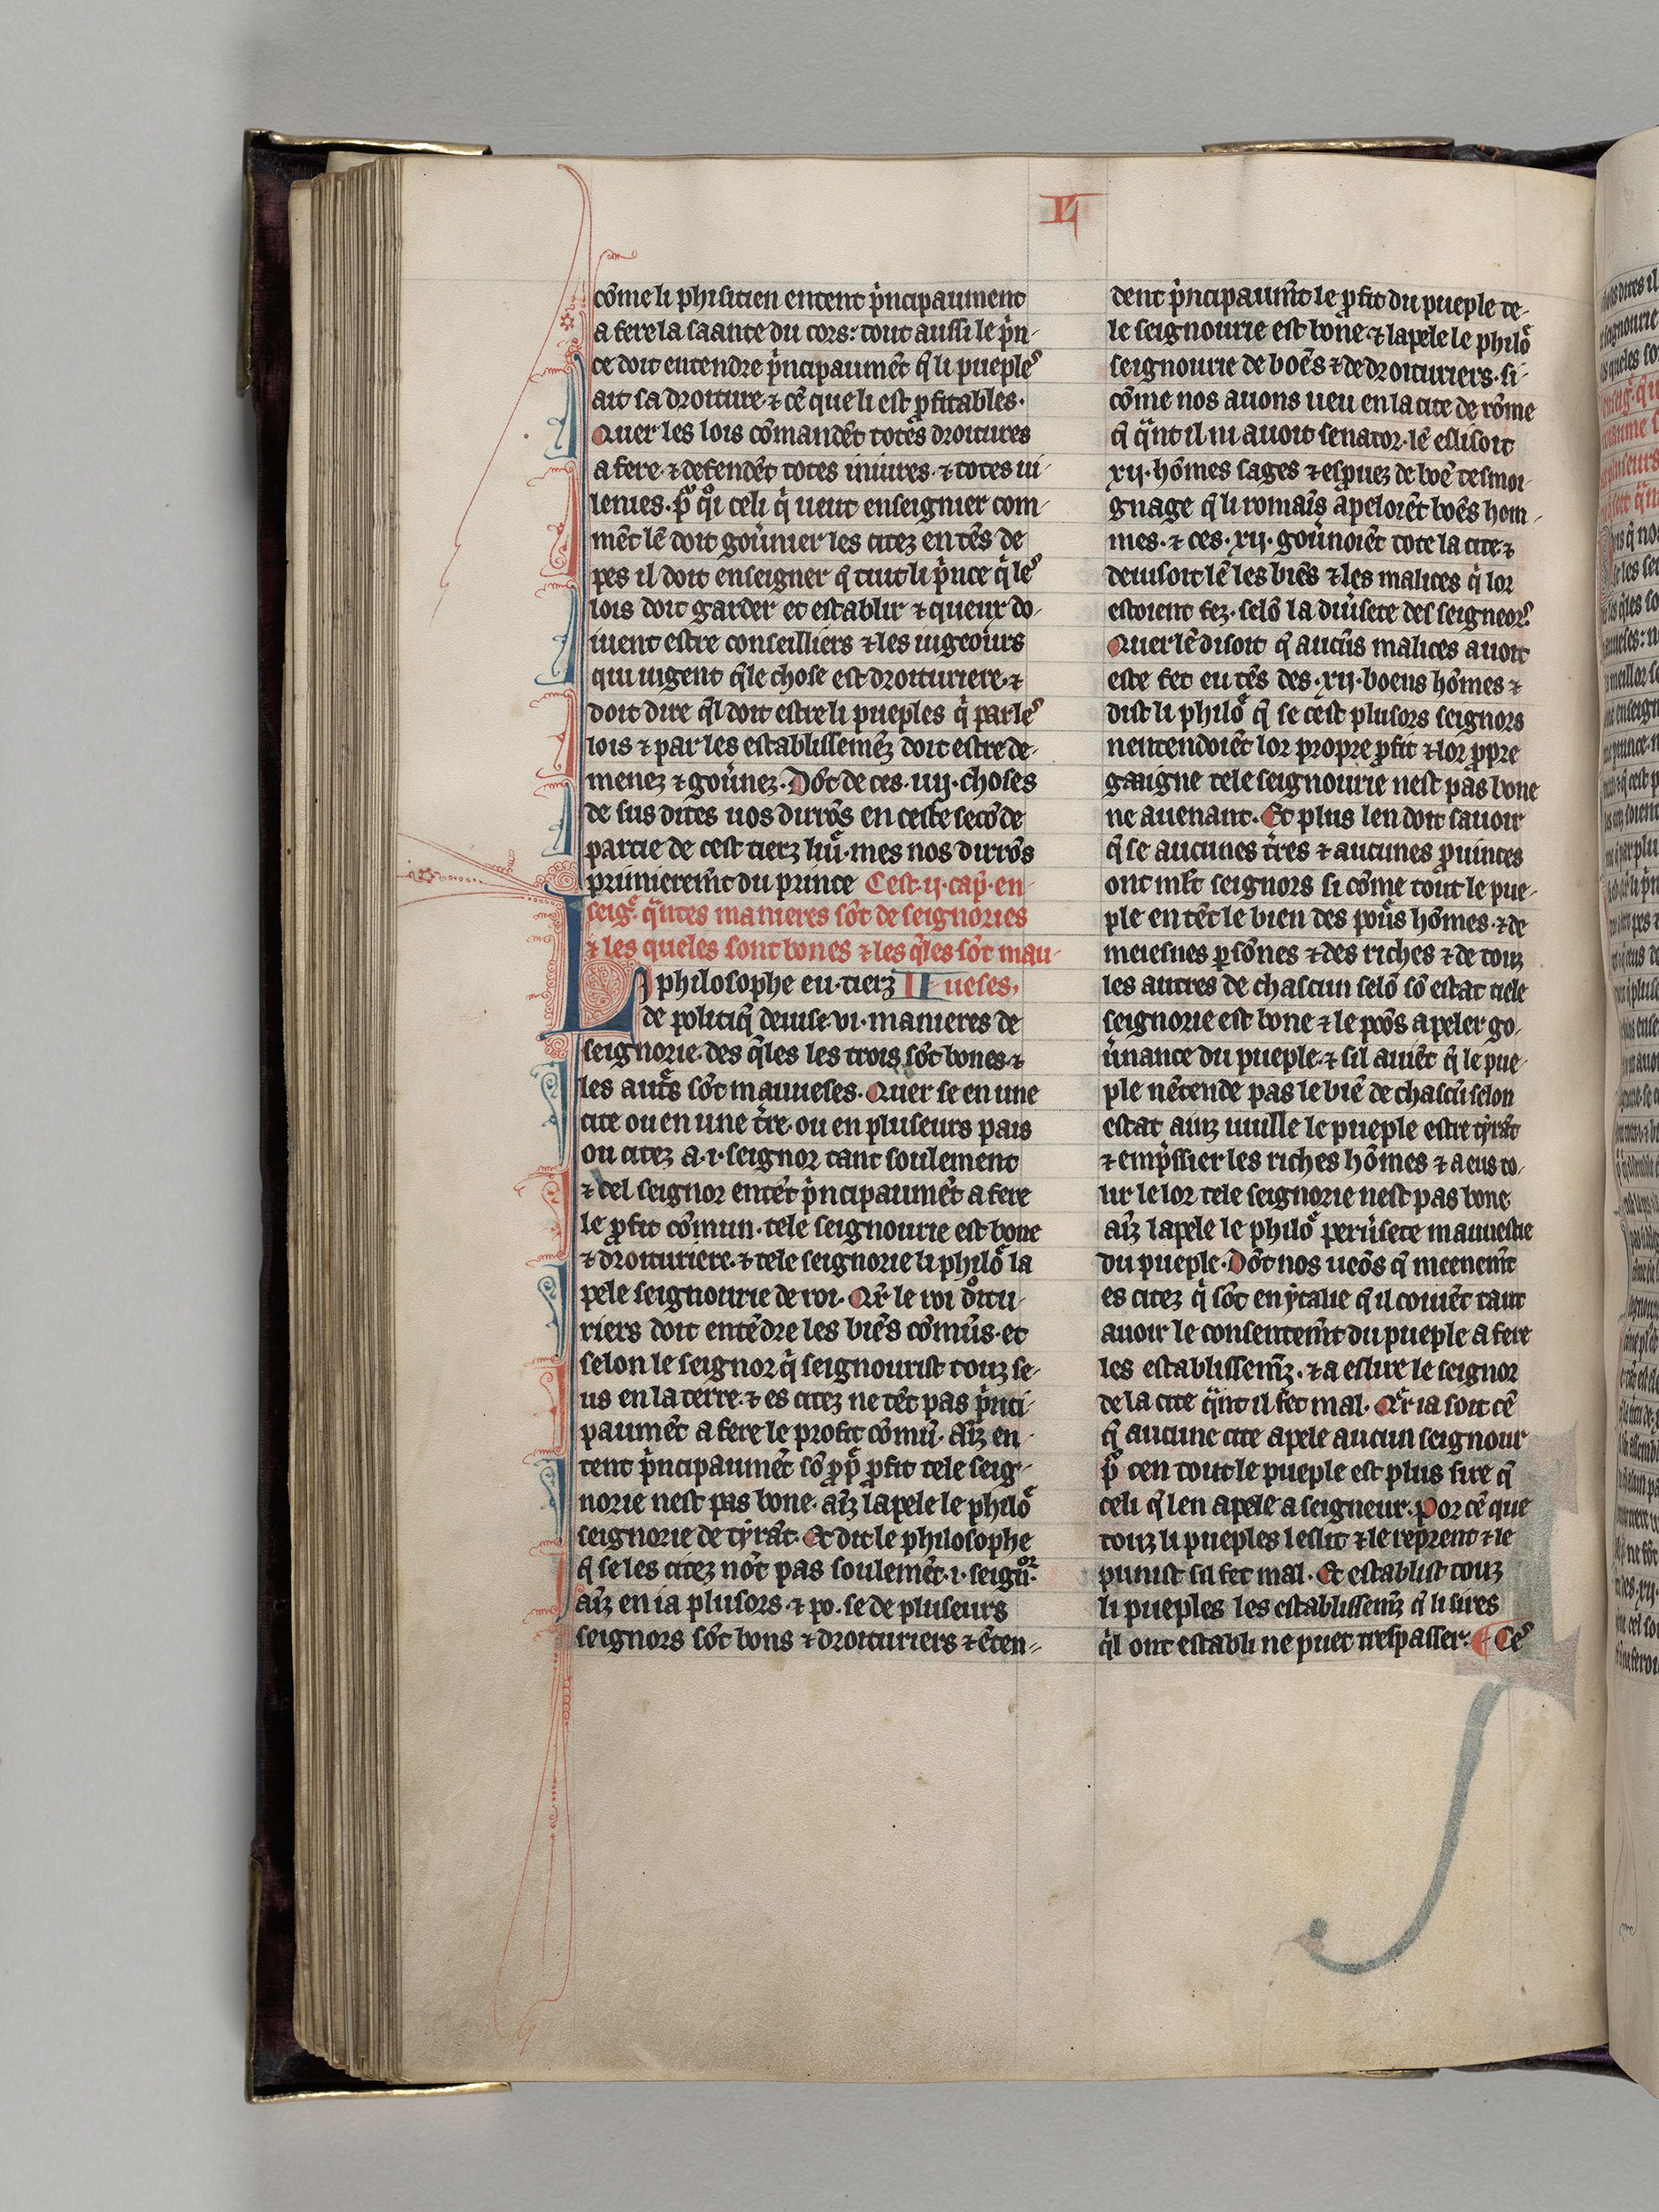 L
cõme li phisicien entent p̍ncipaument
a fere la saante du cors: tout aussi le p̍n-
ce doit entendre p̍ncipaumẽt q̃ li pueples
ait sa droiture ⁊ cẽ que li est ꝓfitables.
Quer les lois cõmandẽt totes droitures
a fere ⁊ defendẽt totes iniures ⁊ totes ui-
lenies. celi q̍ ueut enseignier com-
mẽt lẽ doit gou̾ner les citez en tẽs de
pes il doit enseigner q̃ tiut li p̍nce q̍ les
lois doit garder et establir ⁊ queux do-
iuent estre conseilliers ⁊ les iugeours
qui iugent q̃le chose est droituriere ⁊
doit dire q̃l doit estre li pueples q̍ par les
lois ⁊ par les establissemẽz doit estre de-
menez ⁊ gou̾nez. Dõt de ces .iiij. choses
de sus dites uos dirrõs en ceste secõde
partie de cest tierz liu̾. mes nos dirrõs
primieremẽt du prince Cest .ij. cap̾. en-
seig̾. q̃ntes manieres sõt de seignories
⁊ les queles sont bones ⁊ les q̃les sõt mau-
LI philosophe eu tierz II ueses.
de politiq̃ deuise .vi. manieres de
seignorie. des q̃les les trois sõt bones ⁊
les aut̾s sõt mauueses. Quer se en une
cite ou en une t̾re ou en pluseurs pais
ou citez a .i. seignor tant soulement
⁊ cel seignor entẽt p̍ncipaumẽt a fere
le ꝓfit cõmun. tele seignourie est bone
⁊ droituriere. ⁊ tele seignorie li philo̾ la
pele seignourie de roi. Q̾r le roi d̊itu-
riers doit entẽdre les biẽs cõmũs. et
selon le seignor q̍ seignourist touz se-
us en la terre. ⁊ es citez ne tẽt pas p̍nci-
paumẽt a fere le profit cõmũ. aĩz en-
tent p̍ncipaumẽt sõ ꝓp̾ ꝓfit tele seig-
norie nest pas bone. aĩz lapele le philo̾
seignorie de tyrãt. Et dit le philosophe
q̃ se les citez nõt pas soulemẽt .i. seign̾or.
aĩz en ia plusors. ⁊ po. se de pluseurs
seignors sõt bons ⁊ droituriers ⁊ ẽten-
dent p̍ncipaumẽt le ꝓfit du pueple te-
le seignourie est bone. ⁊ lapele le philo̾
seignourie de boẽs ⁊ de droituriers. si-
cõme nos auons ueu en la cite de rõme
q̃ q̃nt il ni auoit senator. lẽ eslisoit
xij. hõmes sages ⁊ esꝓuez de boẽ tesmoi-
gnage q̃ li romaĩs apeloiẽt boẽs hom-
mes. ⁊ ces .xij. gou̾noiẽt tote la cite ⁊
deuisoit lẽ les biẽs ⁊ les malices q̍ lor
estoient fez. selõ la diu̾sete des seigneors.
Quer lẽ disoit q̃ aucũs malices auoit
este fet eu tẽs des .xij. boens hõmes ⁊
dist li philo̾ q̃ se cest plusors seignors
nentendoiẽt lor propre ꝓfit ⁊ lor ꝓpre
gaaigne tele seignourie nest pas bone
ne auenant. Et plus len doit sauoir
q̃ se aucunes t̾res ⁊ aucunes ꝓuinces
ont mlt̃ seignors si cõme tout le pue-
ple en tẽt le bien des pou̾s hõmes. ⁊ de
meiesnes ꝑsõnes ⁊ des riches ⁊ de touz
les autres de chascun selõ sõ estat tiele
seignorie est bone ⁊ le poõs apeler go-
u̾nance du pueple. ⁊ sil auiẽt q̃ le pue-
ple nẽtende pas le biẽ de chascũ selon
estat ainz uuille le pueple estre tyrãt
⁊ emp̍ssier les riches hõmes ⁊ a eus to-
ir le lor tele seignorie nest pas bone
aĩz lapele le philo̾ peru̾sete mauuestie
du pueple. Dõt nos ueõs q̃ meenemt̃
es citez q̍ sõt en ytalie q̃ il couiẽt tant
auoir le consentemt̃ du pueple a fere
les establissemz̃. ⁊ a eslire le seignor
de la cite q̃nt il fet mal. Q̾r ia soit cẽ
q̃ aucune cite apele aucun seignour
p̊ cen tout le pueple est plus sire q̃
celi q̃ len apele a seigneur. Por cẽ que
touz li pueples leslit ⁊ le reprent ⁊ le
punist sil fet mal. Et establist touz
li pueples les establissemz̃ q̃ li sires
q̍l ont establi ne puet trespasser. ¶ Ces